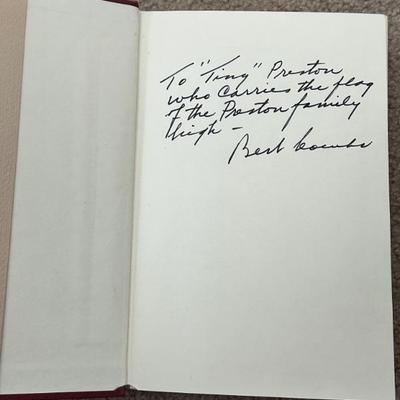 To "Tiny" Preston
who carries the flag
of the Preston family
high -
Bert Combs